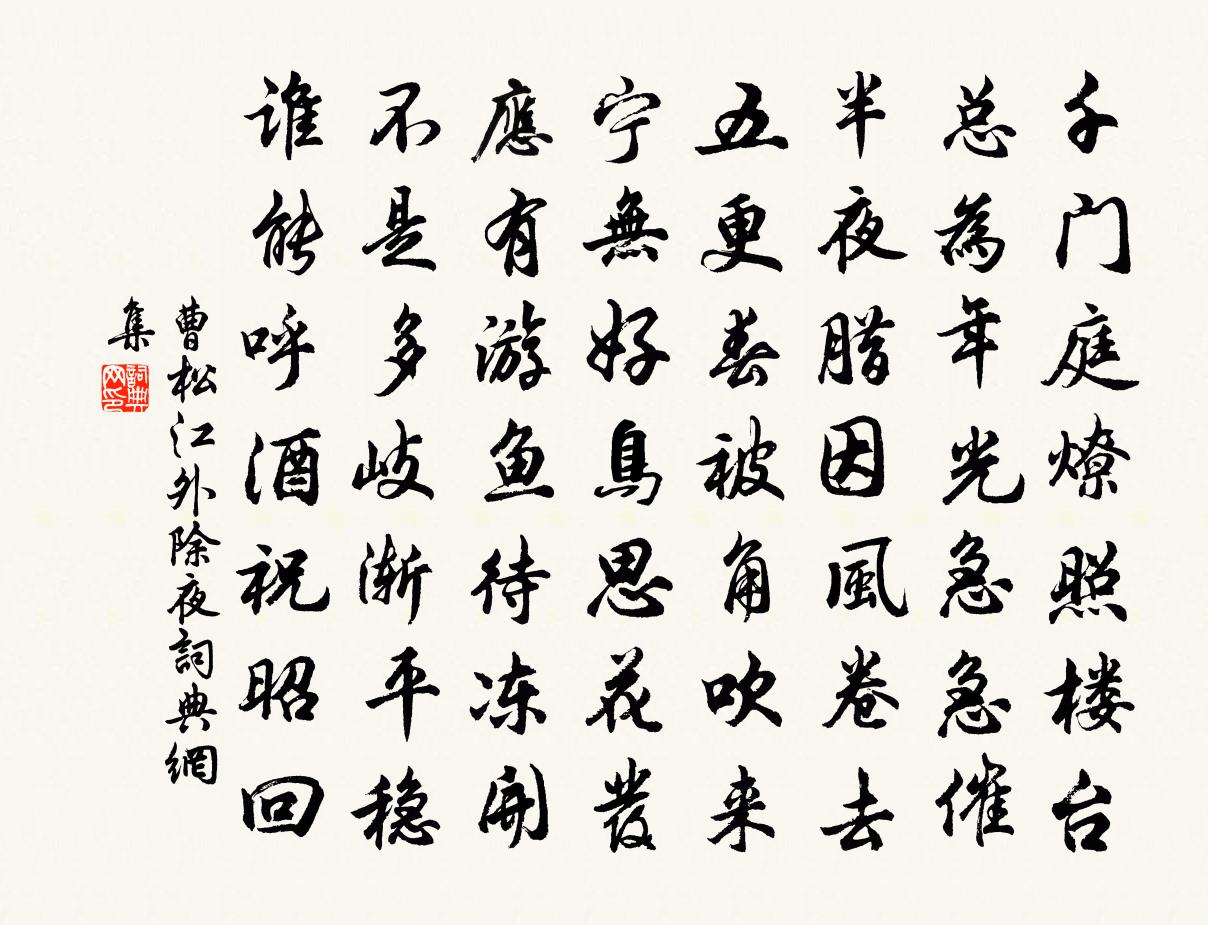 千门庭燎照楼台
总為年光急急催
半夜腊因風卷去
五更春被角吹来
宁無好鳥思花發
應有游魚待冻開
不是多歧渐平穏
谁能呼酒祝昭回
曹松江外除夜詞典網
集
詞典
网印